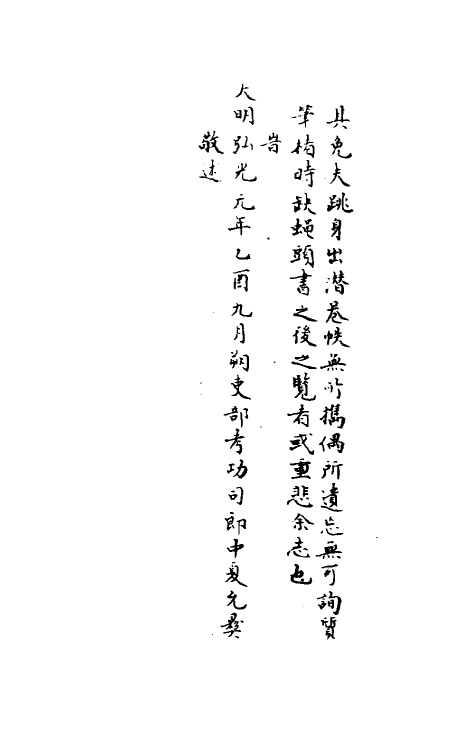 其免夫跳身出潜卷帙無所攜偶所遺忘無可詢質
筆楮時缺蝇頭書之後之覧者或重悲余志也
旹
大明弘光元年乙酉九月朔吏部考功司郎中夏允彝
敬述